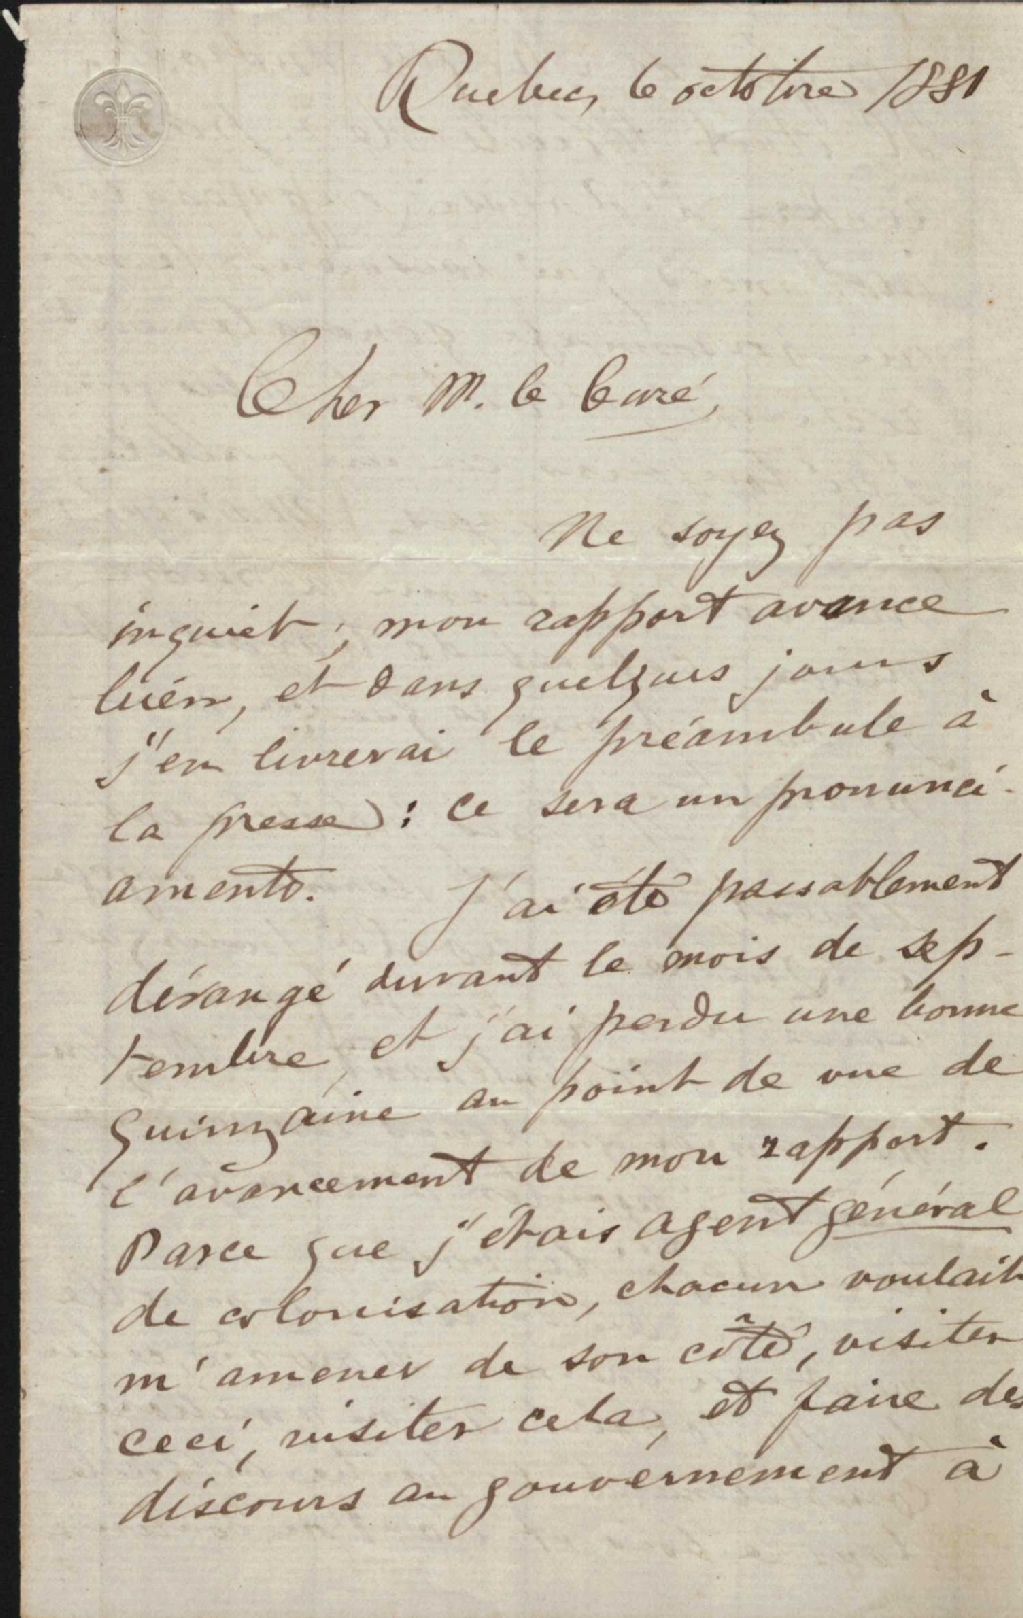 Quebec, 6 octobre 1881
Cher M. le Curé,
Ne soyez pas
inquiet; mon rapport avance
bien, et dans quelques jours
j'en livrerai le préambule à
la presse: ce sera un pronunci-
amento. J'ai été passablement
dérangé durant le mois de sep-
tembre, et j'ai perdu une bonne
quinzaine au point de vue de
l'avancement de mon rapport.
Parce que j'étais agent général
de colonisation, chacun voulait
m'amener de son côté, visiter
ceci, visiter cela, et faire des
discours au gouvernement à